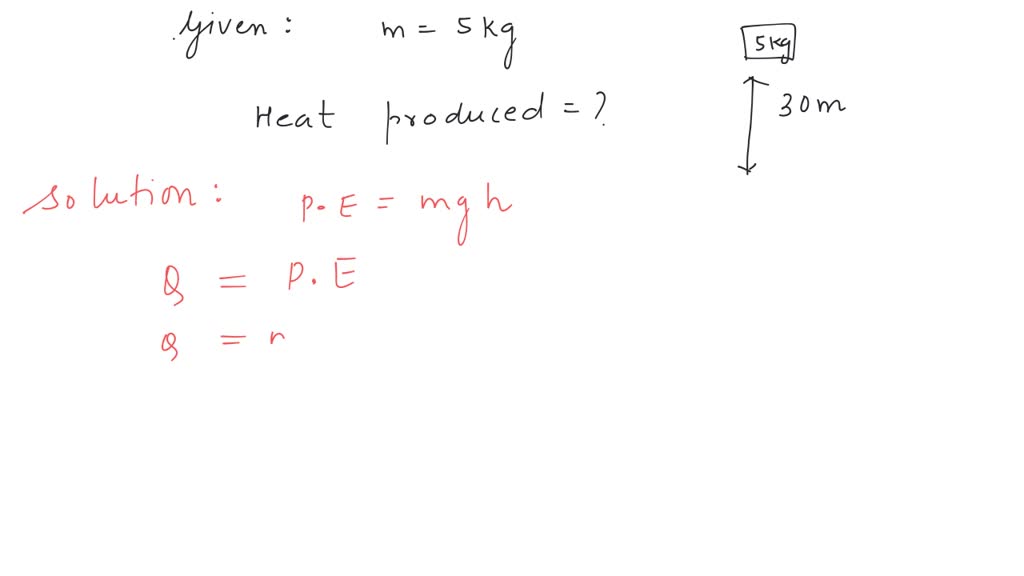 Given : m = 5 kg
5 kg
30 m
Heat produced = ?
Solution : P.E = mgh
Q = P.E
Q =